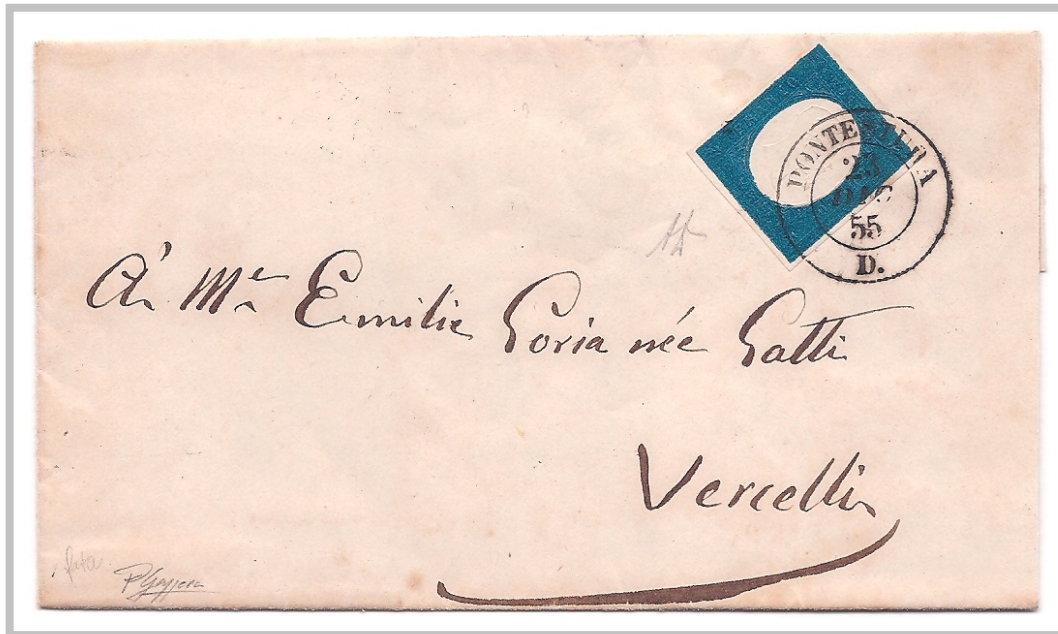 PONTESTURA
23
DIC
55
D.
À Me Emilie Goria née Gatti
Vercelli